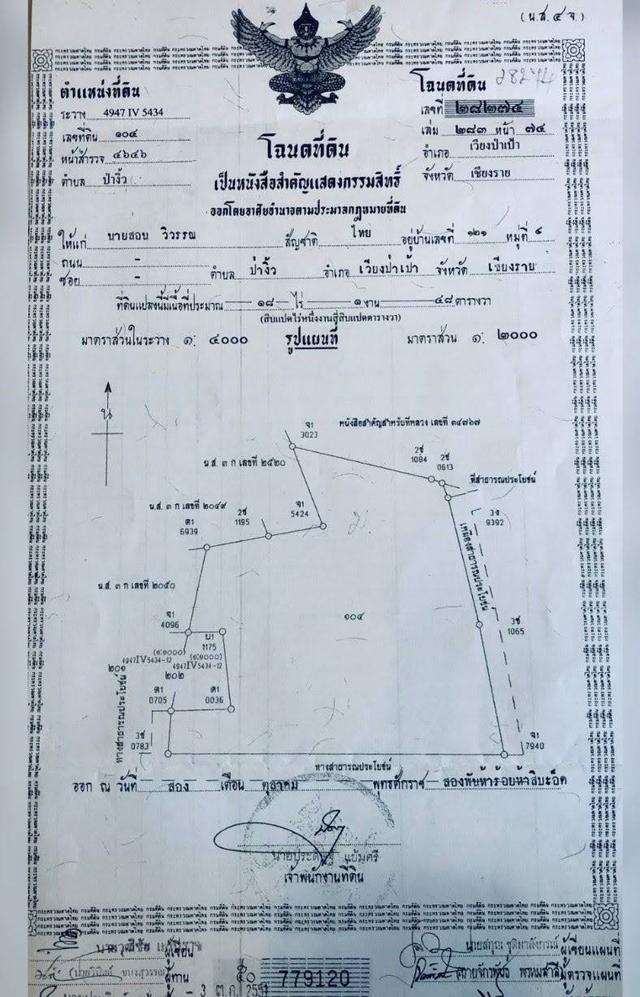 (น.ส.๔ จ.)
ตำแหน่งที่ดิน
ระวาง 4947 IV 5434
เลขที่ดิน ๑๐๔
หน้าสำรวจ ๔๖๔๖
ตำบล ป่างิ้ว
โฉนดที่ดิน
28274
เลขที่ ๒๘๒๗๔
เล่ม ๒๘๓ หน้า ๗๔
อำเภอ เวียงป่าเป้า
จังหวัด เชียงราย
โฉนดที่ดิน
เป็นหนังสือสำคัญแสดงกรรมสิทธิ์
ออกโดยอาศัยอำนาจตามประมวลกฎหมายที่ดิน
ให้แก่ นายสอน วิวรรณ สัญชาติ ไทย อยู่บ้านเลขที่ ๑๒๑ หมู่ที่
ถนน -
ซอย - ตำบล ป่างิ้ว อำเภอ เวียงป่าเป้า จังหวัด เชียงราย
ที่ดินแปลงนี้มีเนื้อที่ประมาณ ๑๘ ไร่ ๑ งาน ๔๘ ตารางวา
(สิบแปดไร่หนึ่งงานสี่สิบแปดตารางวา)
มาตราส่วนในระวาง ๑: ๔๐๐๐ รูปแผนที่ มาตราส่วน ๑: ๒๐๐๐
น
หนังสือสำคัญสำหรับที่หลวง เลขที่ ๓๔๗๖๗
จ1
3023
น.ส. ๓ ก เลขที่ ๒๔๒๐
2ซ
1084
2ซ
0613
ที่สาธารณประโยชน์
น.ส. ๓ ก เลขที่ ๒๐๔๙
ต1
6939
2ซ
1195
จ1
5424
3ง
9392
เหมืองสาธารณประโยชน์
น.ส. ๓ ก เลขที่ ๒๐๕๐
๑๐๔
จ1
4096
บ1
1175
3ซ
1065
(๑:๑๐๐๐)
4947IV5434-12
(๑:๑๐๐๐)
4947IV5434-12
๒๐๑
๒๐๒
ต1
0705
ต1
0036
ทางสาธารณประโยชน์
3ซ
0783
จ1
7940
ทางสาธารณประโยชน์
ออก ณ วันที่ สอง เดือน ตุลาคม พุทธศักราช สองพันห้าร้อยห้าสิบเอ็ด
แย้มศรี
เจ้าพนักงานที่ดิน
ผู้เขียน
ผู้ทาน
779120
3 ต.ค. 2551
ผู้เขียนแผนที่
ผู้ตรวจแผนที่